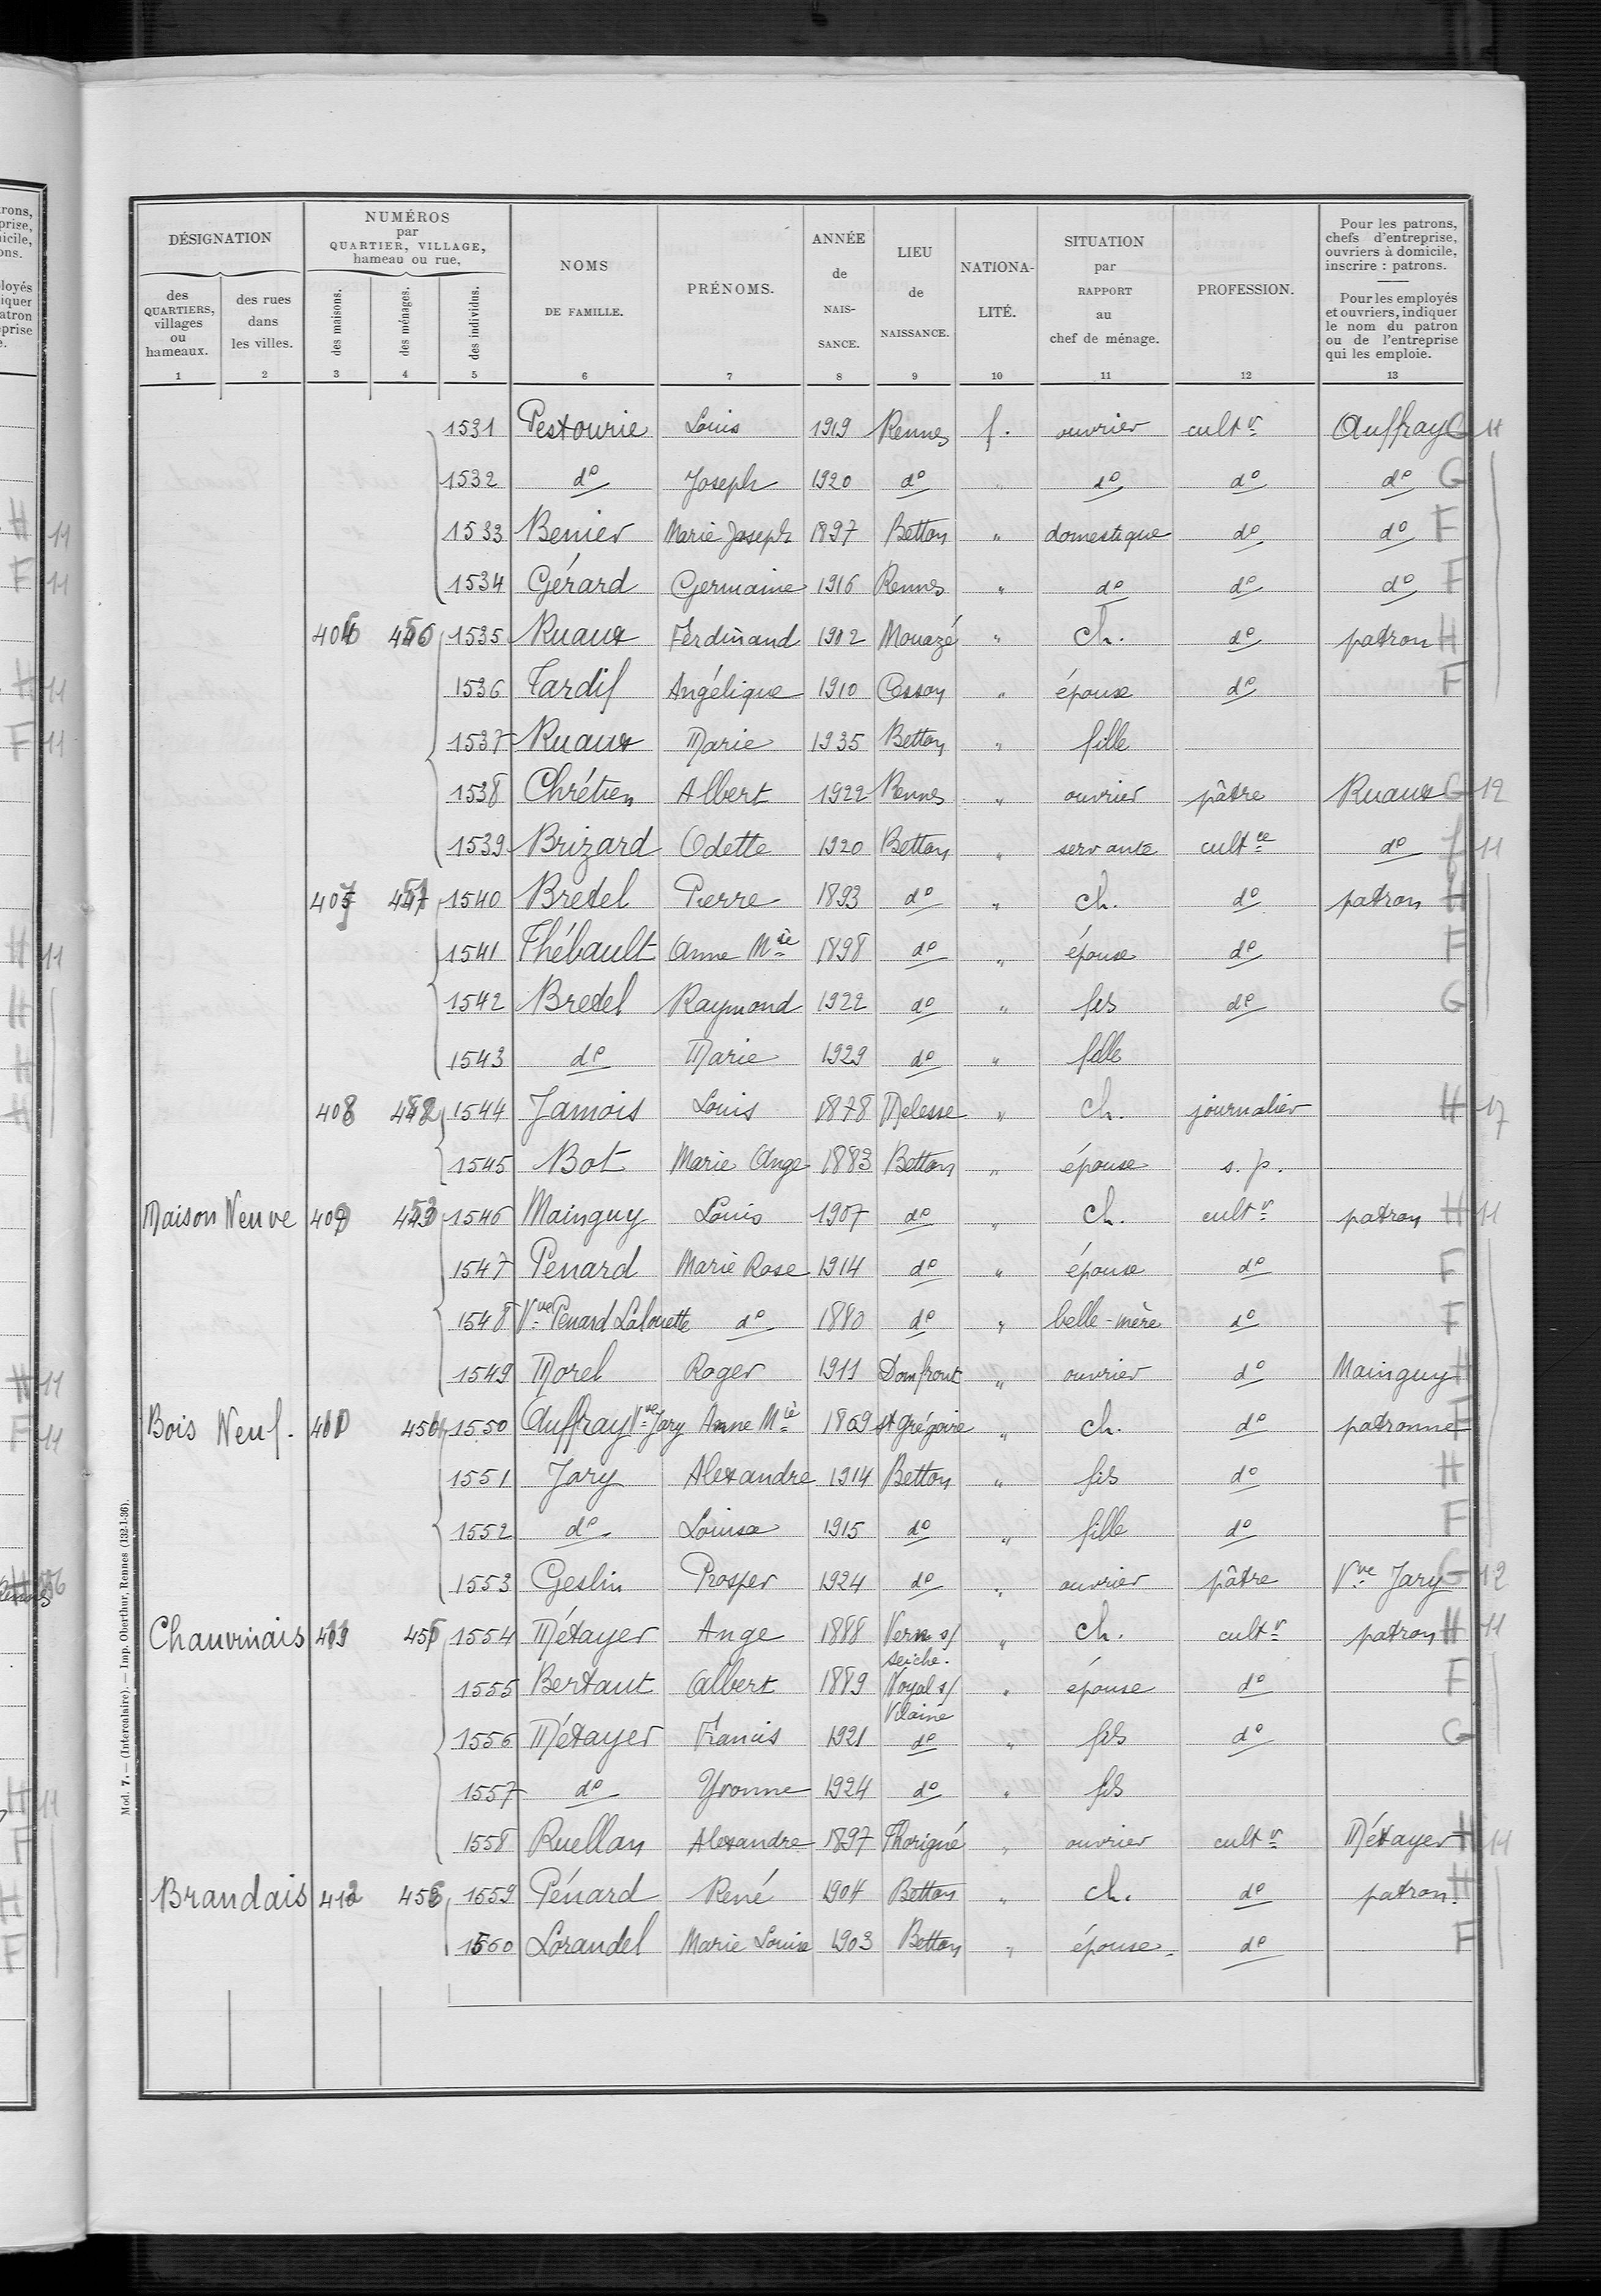 DÉSIGNATION
des QUARTIERS, villages ou hameaux.
des rues dans les villes.
NUMÉROS par QUARTIER, VILLAGE, hameau ou rue,
des maisons.
des ménages.
des individus.
NOMS DE FAMILLE.
PRÉNOMS.
ANNÉE de NAIS- SANCE.
LIEU de NAISSANCE.
NATIONA- LITÉ.
SITUATION par RAPPORT au chef de ménage.
PROFESSION.
Pour les patrons, chefs d'entreprise, ouvriers à domicile, inscrire : patrons.
Pour les employés et ouvriers, indiquer le nom du patron ou de l'entreprise qui les emploie.
1 2 3 4 5 6 7 8 9 10 11 12 13
1531 Pestourie Louis 1919 Rennes f. ouvrier cultr Auffray G 11
1532 do Joseph 1920 do " do do do G
1533 Benier Marie Joseph 1897 Betton " domestique do do F
1534 Gérard Germaine 1916 Rennes " do do do F
406 1535 Ruaux Ferdinand 1902 Mouazé " ch. do patron H
1536 Tardif Angélique 1910 Cesson " épouse do F
1537 Ruaux Marie 1935 Betton " fille
1538 Chrétien Albert 1922 Rennes " ouvrier pâtre Ruaux G 12
1539 Brizard Odette 1920 Betton " servante cultce do f 11
407 451 1540 Bretel Pierre 1893 do " ch. do patron H
1541 Thébault Anne Mie 1898 do " épouse do F
1542 Bretel Raymond 1922 do " fils do G
1543 do Marie 1929 do " fille
408 452 1544 Jamois Louis 1878 Melesse " ch. journalier H 17
1545 Bot Marie Ange 1883 Betton " épouse s. p.
Maison Neuve 409 453 1546 Mainguy Louis 1907 do " ch. cultr patron H 11
1547 Penard Marie Rose 1914 do " épouse do F
1548 Vve Penard Lalouette do 1880 do " belle-mère do F
1549 Morel Roger 1911 Domfront " ouvrier do Mainguy H
Bois Neuf. 410 454 1550 Auffray Vve Jary Anne Mie 1869 St Grégoire " ch. do patronne F
1551 Jary Alexandre 1914 Betton " fils do H
1552 do Louise 1915 do " fille do F
1553 Geslin Prosper 1924 do " ouvrier pâtre Vve Jary G 12
Chauvinais 455 1554 Métayer Ange 1888 Vern s/ seiche. " ch. cultr patron H 11
1555 Bertaut Albert 1889 Noyal s/ Vilaine " épouse do F
1556 Métayer Francis 1921 do " fils do G
1557 do Yvonne 1924 do " fils
1558 Ruellan Alexandre 1897 Thorigné " ouvrier cultr Métayer H 11
Brandais 412 456 1559 Pénard René 1904 Betton " ch. do patron. H
1560 Lorandel Marie Louise 1903 Betton " épouse do F
Mod. 7. — (Intercalaire). — Imp. Oberthur, Rennes (132-1-36).